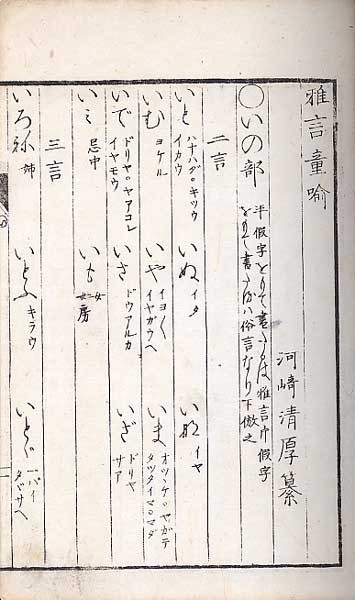 雅言童喩
河﨑清厚纂
○いの部
平假字をもて書たるは雅言片假字
をもて書たるハ俗言なり下傚之
二言
いと ハナハダ○キツウ イカウ
いぬ イタ
いな イヤ
いむ ヨケル
いや イヨ〳〵 イヤガウヘ
いま オツヽケ○ヤガテ タツタイマ○マダ
いで ドリヤ○ヤアコレ イヤモウ
いさ ドウアルカ
いざ ドリヤ サア
いミ 忌中
いも 女房
三言
いろね 姉
いとふ キラウ
いとゞ 一バイ タヾサヘ